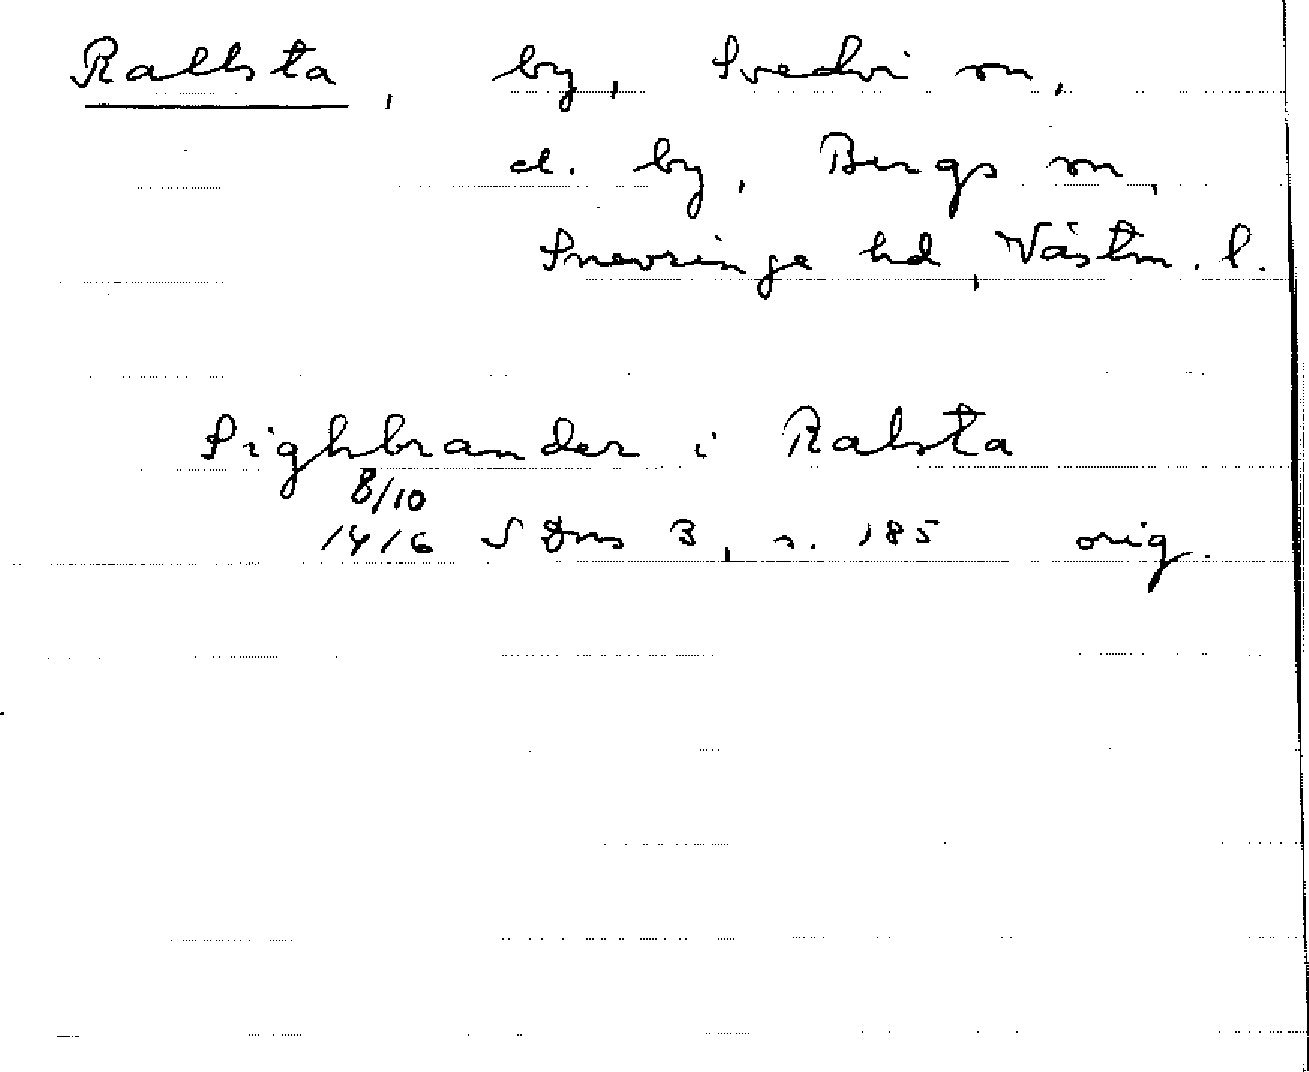 Rallsta, by, Svedvi sn,
el. by, Bergs sn,
Snevringe hd, Västm. l.
Sighbrander i Ralsta
8/10
1416 SDns 3, s. 185 orig.